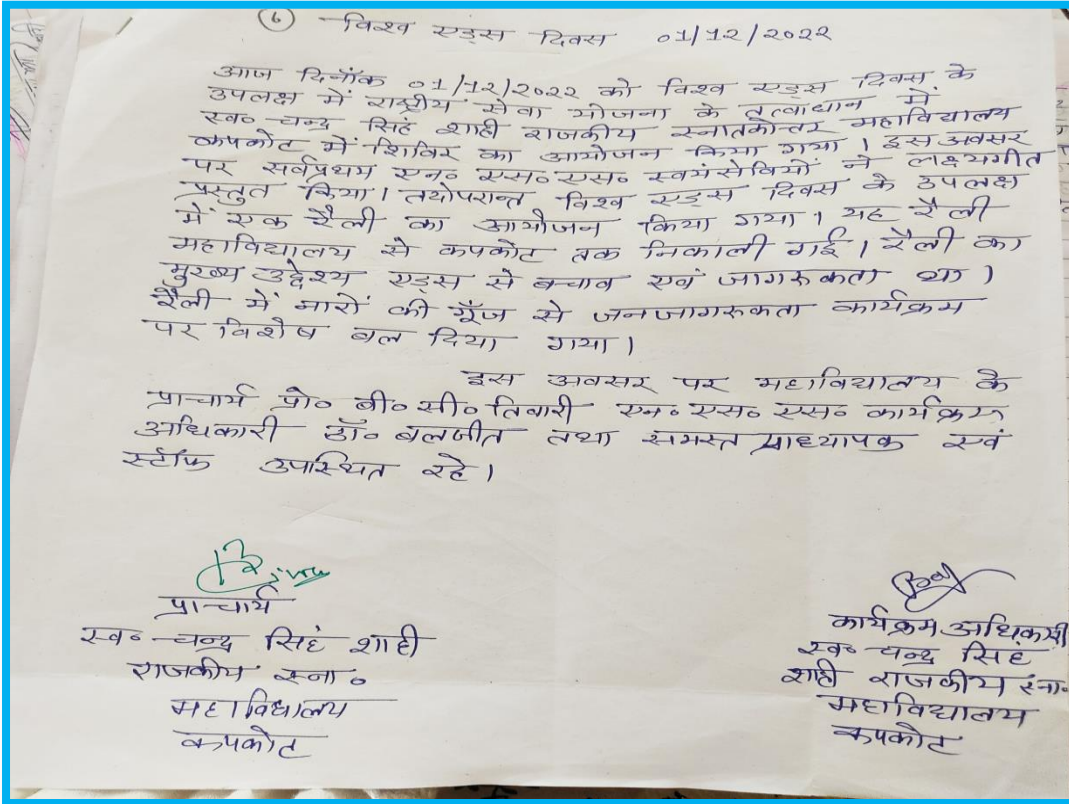 6 विश्व एड्स दिवस 01/12/2022
आज दिनाँक 01/12/2022 को विश्व एड्स दिवस के
उपलक्ष में राष्ट्रीय सेवा योजना के तत्वाधान में
स्व० चन्द्र सिंह शाही राजकीय स्नातकोत्तर महाविद्यालय
कपकोट में शिविर का आयोजन किया गया। इस अवसर
पर सर्वप्रथम एन० एस० एस० स्वयंसेवियों ने लक्ष्यगीत
प्रस्तुत किया। तयोपरान्त विश्व एड्स दिवस के उपलक्ष
में एक रैली का आयोजन किया गया। यह रैली
महाविद्यालय से कपकोट तक निकाली गई। रैली का
मुख्य उद्देश्य एड्स से बचाव एवं जागरुकता था।
रैली में नारों की गूँज से जनजागरुकता कार्यक्रम
पर विशेष बल दिया गया।
इस अवसर पर महाविद्यालय के
प्राचार्य प्रो० बी० सी० तिवारी एन० एस० एस० कार्यक्रम
अधिकारी डॉ० बलजीत तथा समस्त प्राध्यापक एवं
स्टॉफ उपस्थित रहे।
प्राचार्य
स्व० चन्द्र सिहं शाही
राजकीय स्ना०
महाविद्यालय
कपकोट
कार्यक्रम अधिकारी
स्व० चन्द्र सिहं
शाही राजकीय स्ना०
महाविद्यालय
कपकोट